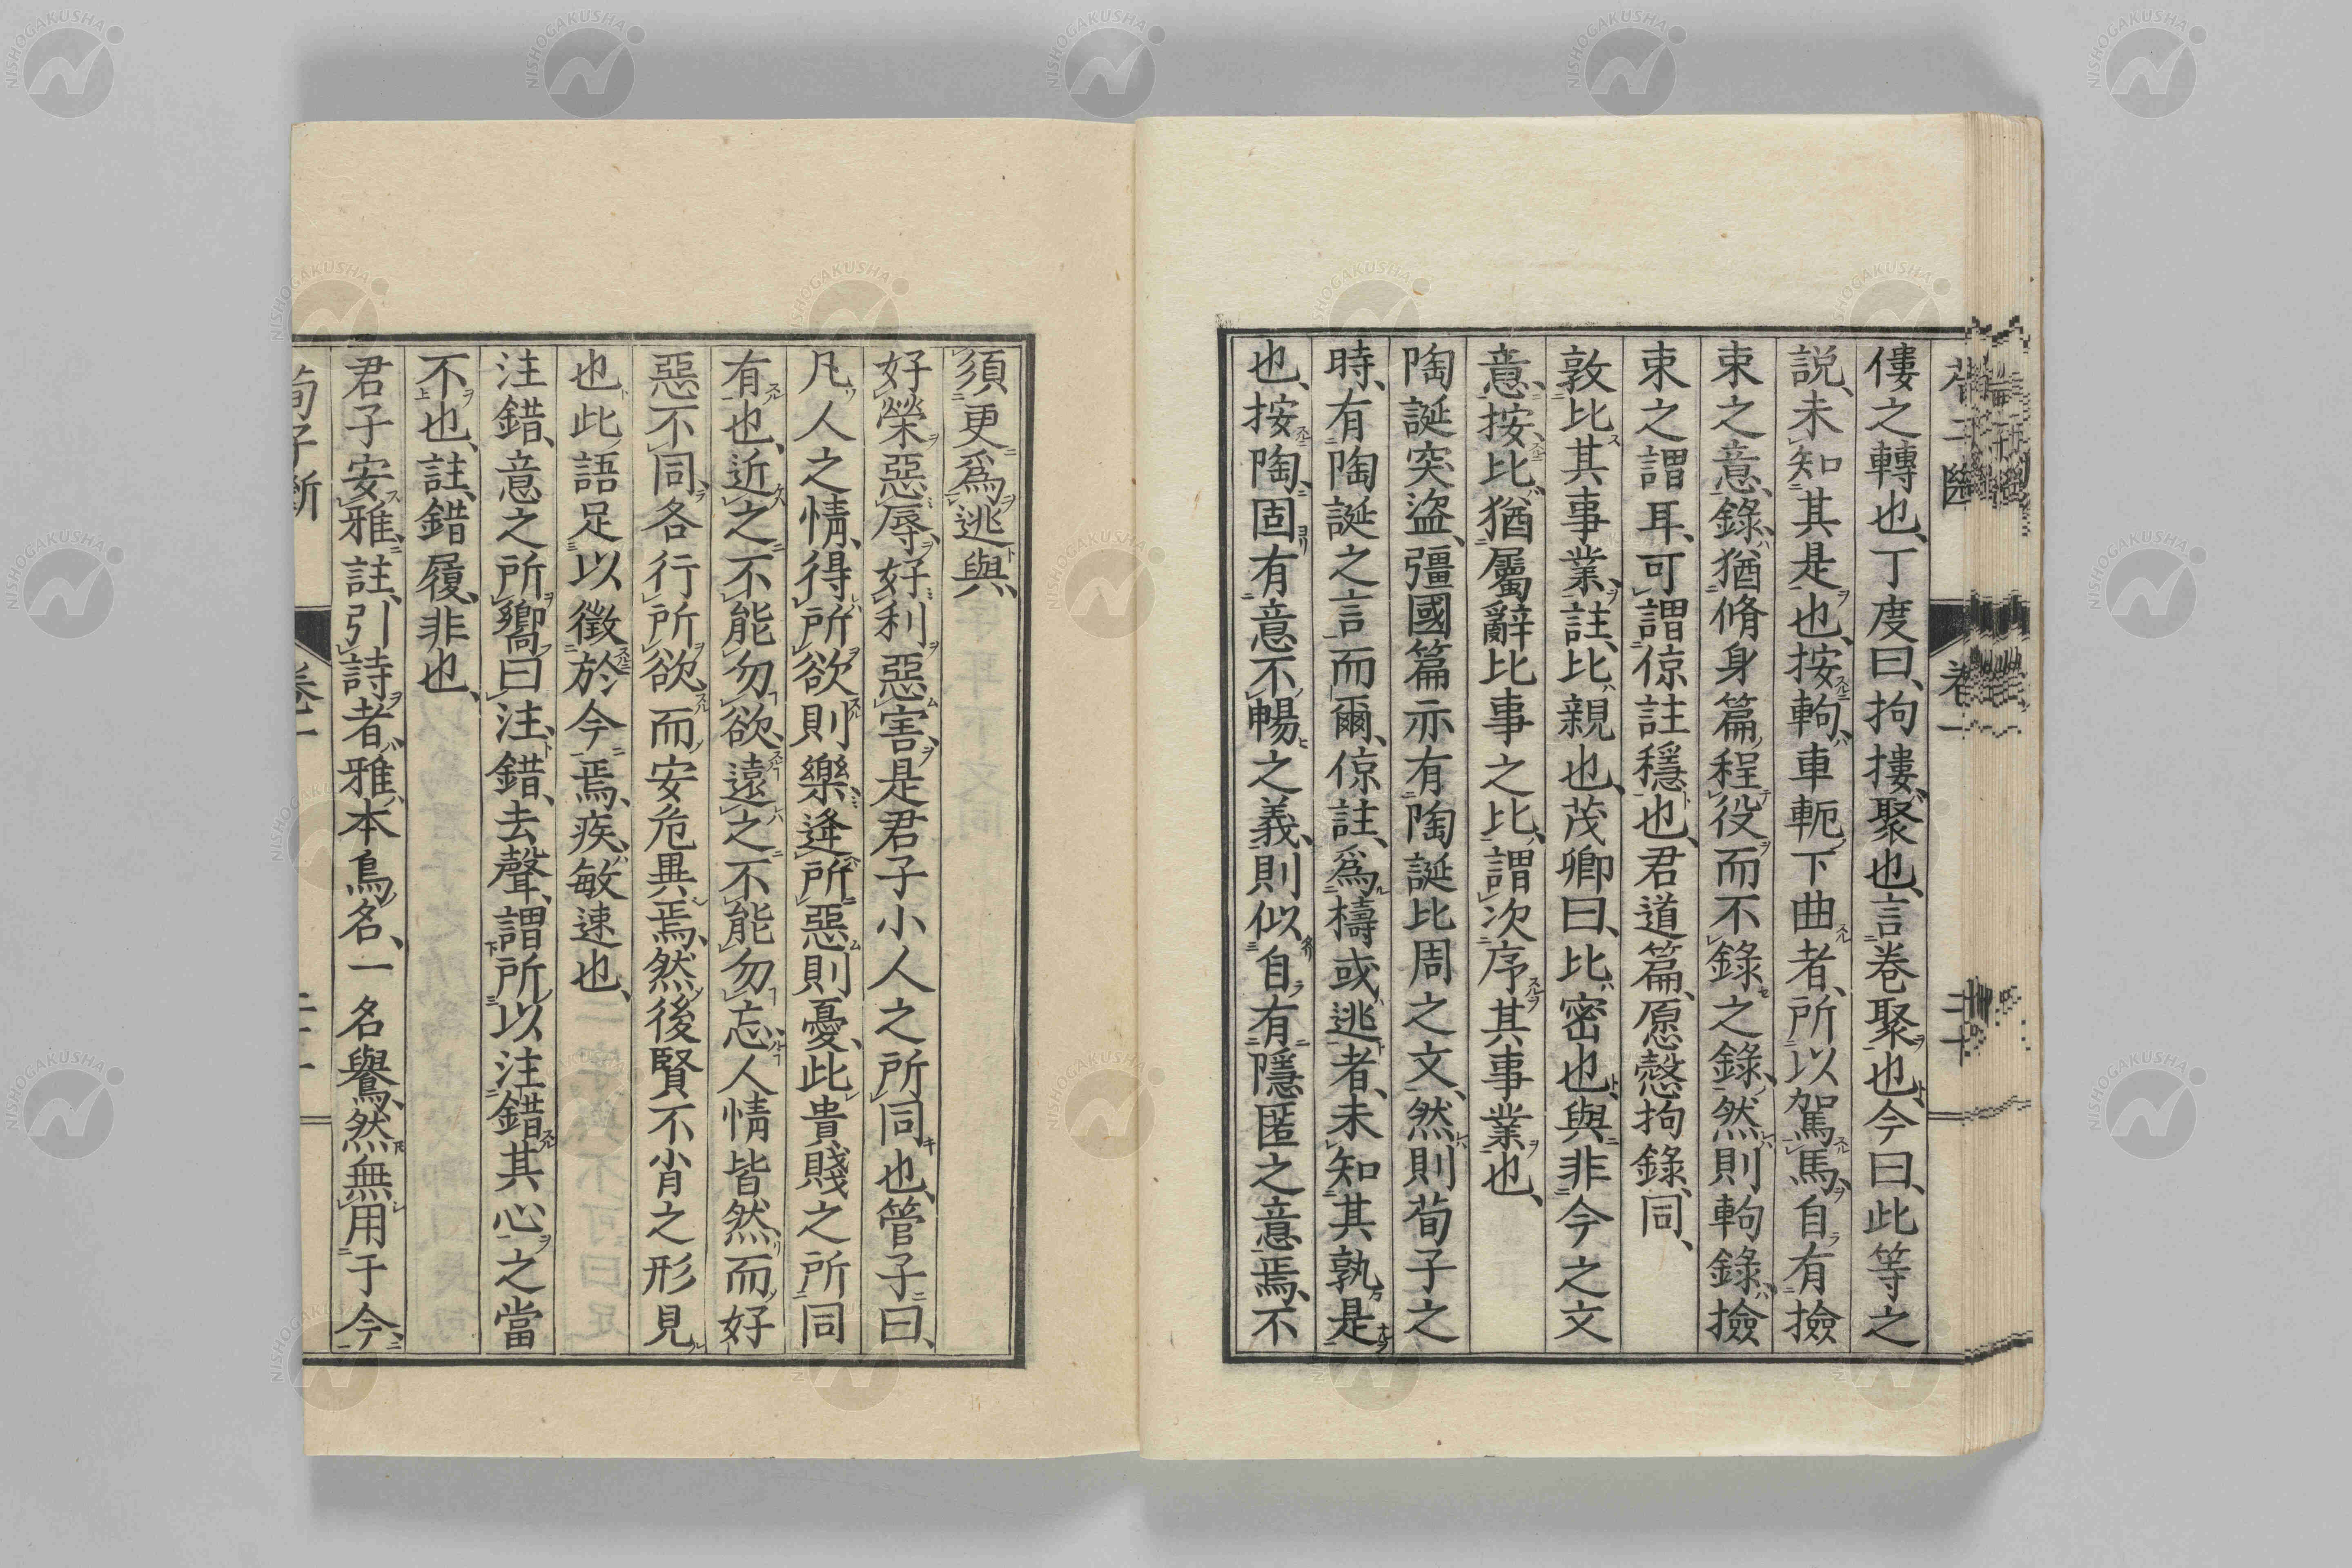 僂之轉也、丁度曰、拘摟、聚也、言卷聚也、今曰、此等之
説、未知其是也、按軥、車軛下曲者、所以駕馬、自有撿
束之意、錄、猶脩身篇、程役而不錄之錄、然則軥錄、撿
束之謂耳、可謂倞註穩也、君道篇、愿愨拘錄、同、
敦比其事業、註、比、親也、茂卿曰、比、密也、與非今之文
意、按、比、猶屬辭比事之比、謂次序其事業也、
陶誕突盜、彊國篇亦有陶誕比周之文、然則荀子之
時、有陶誕之言而爾、倞註、爲檮或逃者、未知其孰是
也、按陶、固有意不暢之義、則似自有隱匿之意焉、不
須更爲逃與、
好榮惡辱、好利惡害、是君子小人之所同也、管子曰、
凡人之情、得所欲則樂、逢所惡則憂、此貴賤之所同
有也、近之不能勿欲、遠之不能勿忘、人情皆然、而好
惡不同、各行所欲、而安危異焉、然後賢不肖之形見
也、此語足以徵於今焉、疾、敏速也、
注錯、意之所嚮曰注、錯、去聲、謂所以注錯其心之當
不也、註、錯履、非也、
君子安雅、註、引詩者、雅、本鳥名、一名鸒、然無用于今、
荀子斷
卷一
二十一
NISHOGAKUSHA